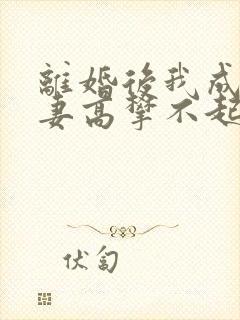 離婚後我成
妻高攀不起
伏匐